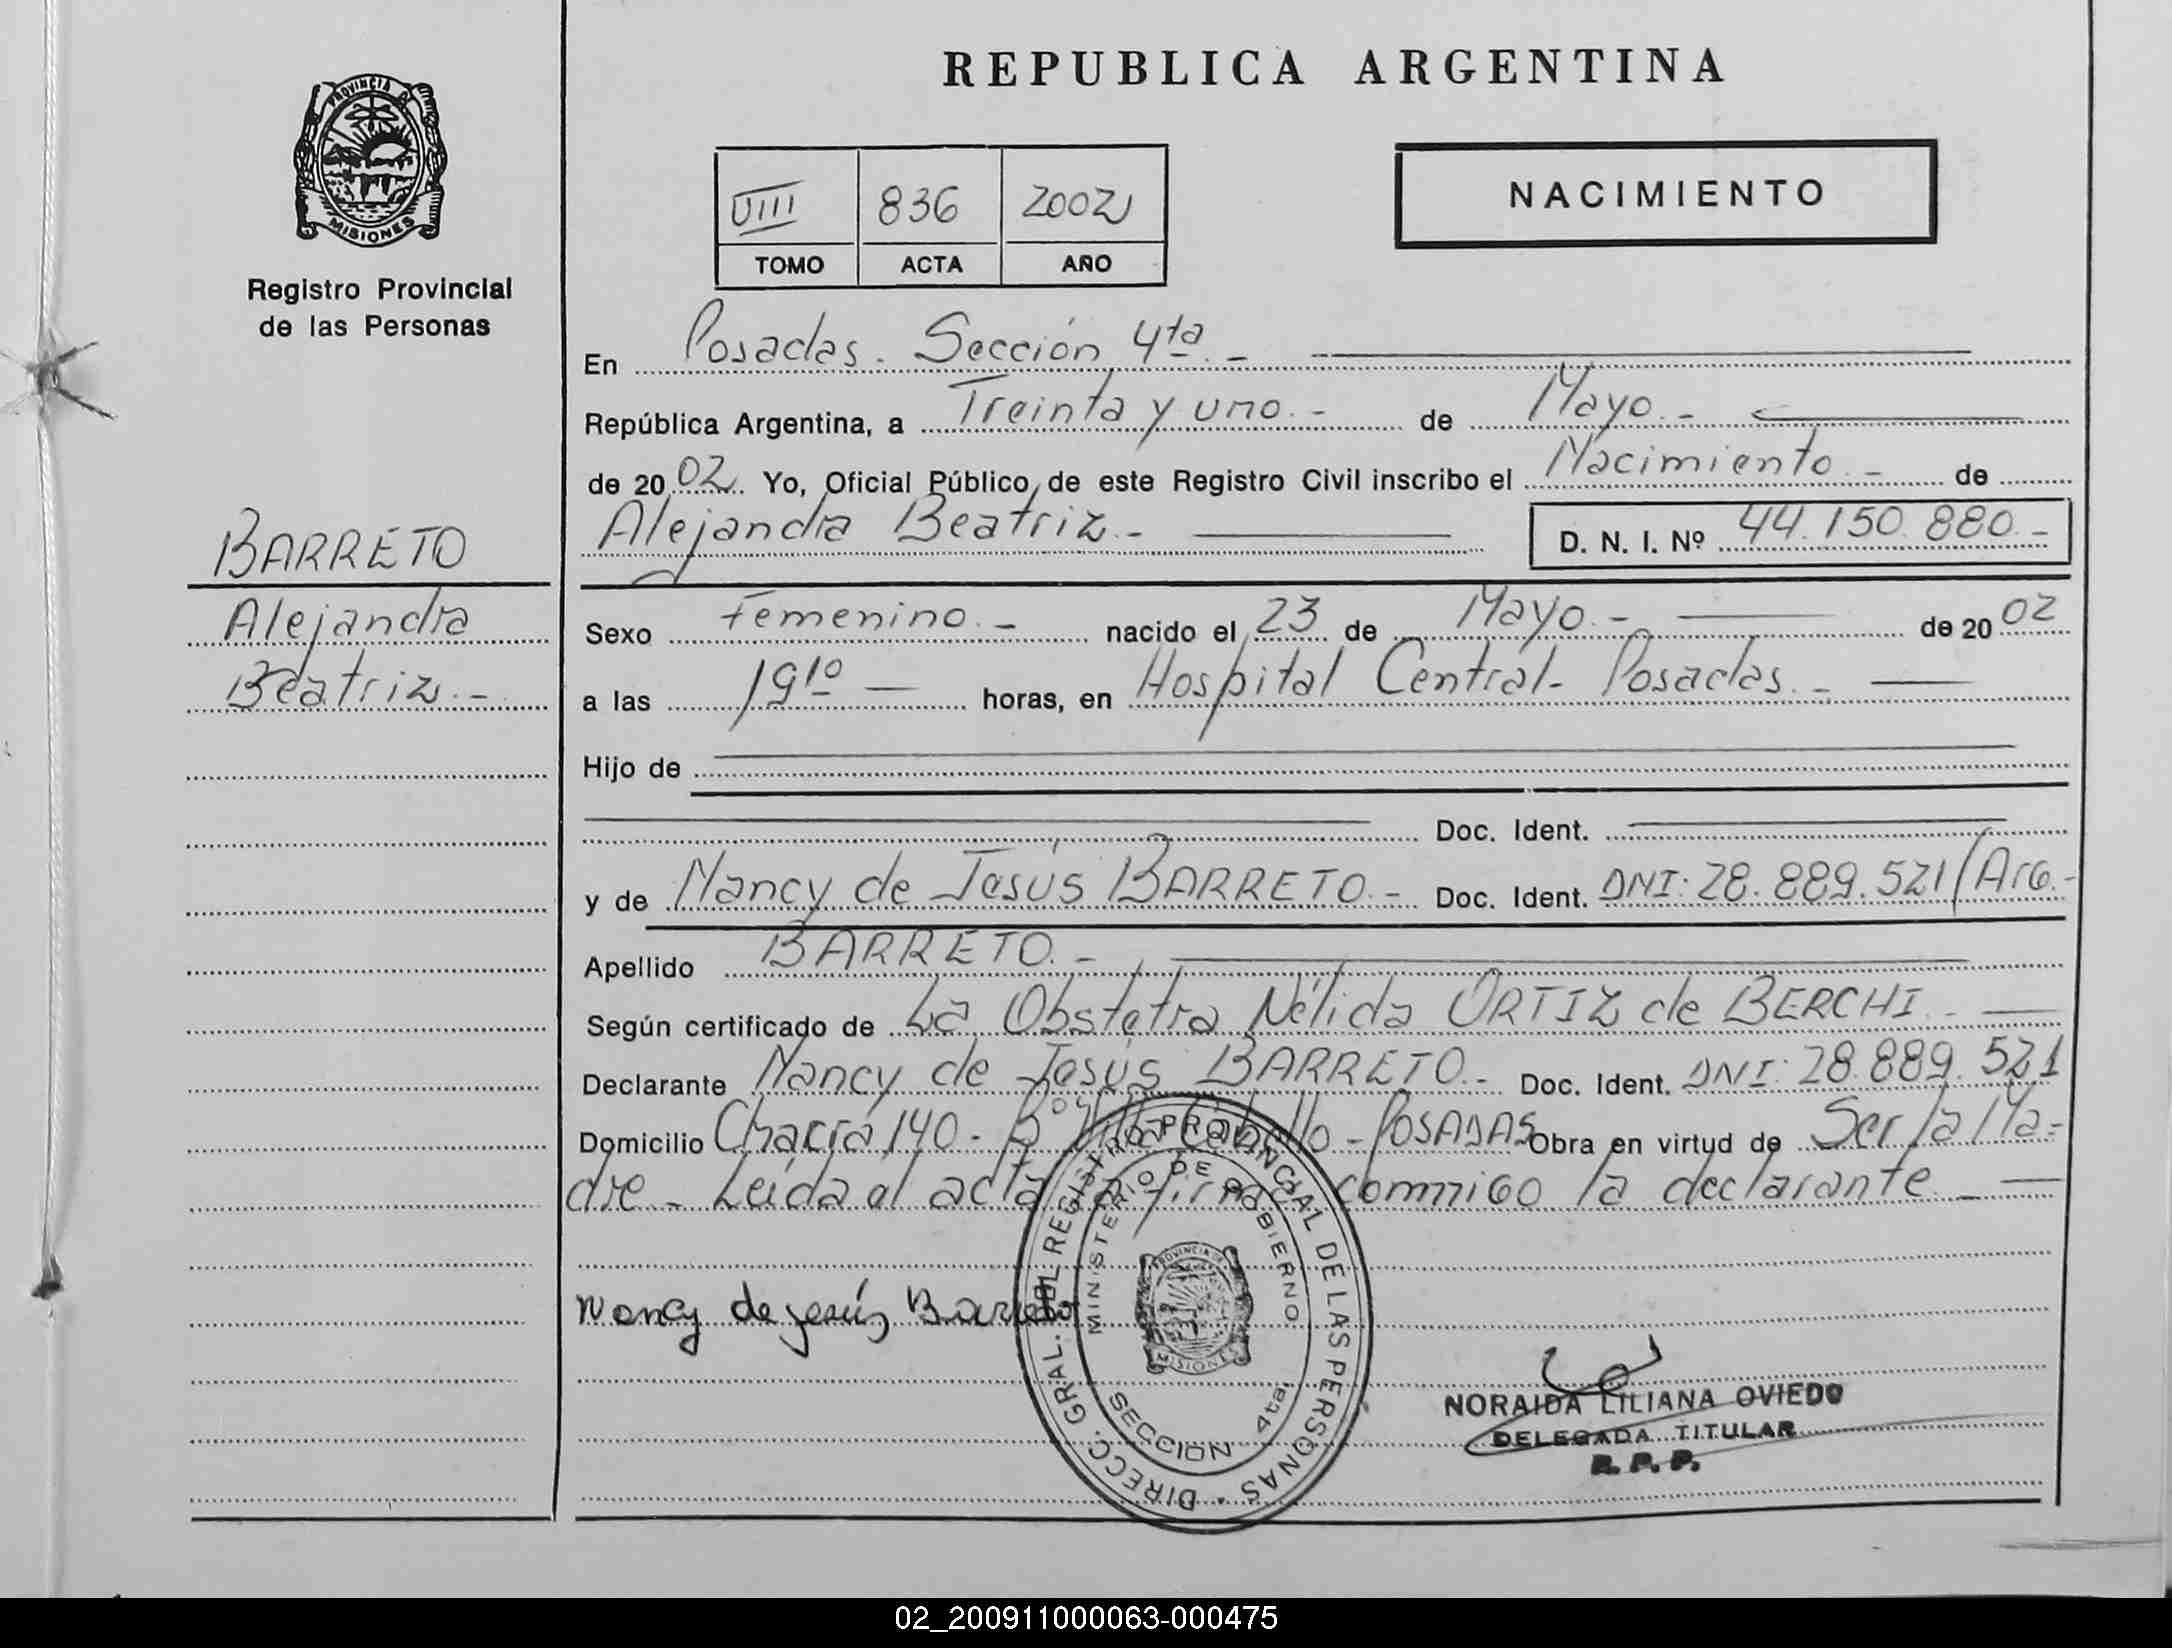 REPUBLICA ARGENTINA
PROVINCIA DE
MISIONES
Registro Provincial
de las Personas
VIII 836 2002
TOMO ACTA AÑO
NACIMIENTO
En Posadas. Sección 4ta. -
República Argentina, a Treinta y uno. - de Mayo. -
de 2002. Yo, Oficial Público, de este Registro Civil inscribo el Nacimiento. - de
Alejandra Beatriz. - D. N. I. Nº 44.150.880. -
BARRETO
Alejandra
Beatriz. -
Sexo Femenino. - nacido el 23 de Mayo. - de 2002
a las 19 10 — horas, en Hospital Central - Posadas. -
Hijo de
Doc. Ident.
y de Nancy de Jesús BARRETO. - Doc. Ident. DNI: 28.889.521/Arg. -
Apellido BARRETO. -
Según certificado de La Obstetra Nélida ORTIZ de BERCHI. -
Declarante Nancy de Jesús BARRETO. - Doc. Ident. DNI: 28.889.521
Domicilio Chacra 140 - Bº Villa Cabello - POSADAS Obra en virtud de Ser la Ma=
dre - Leída el acta la firma conmigo la declarante. -
Nancy de Jesús Barreto
DIRECC. GRAL. DEL REGISTRO PROVINCIAL DE LAS PERSONAS
MINISTERIO DE GOBIERNO
PROVINCIA DE
MISIONES
SECCION 4ta.
NORAIDA LILIANA OVIEDO
DELEGADA TITULAR
R. P. P.
02_200911000063-000475